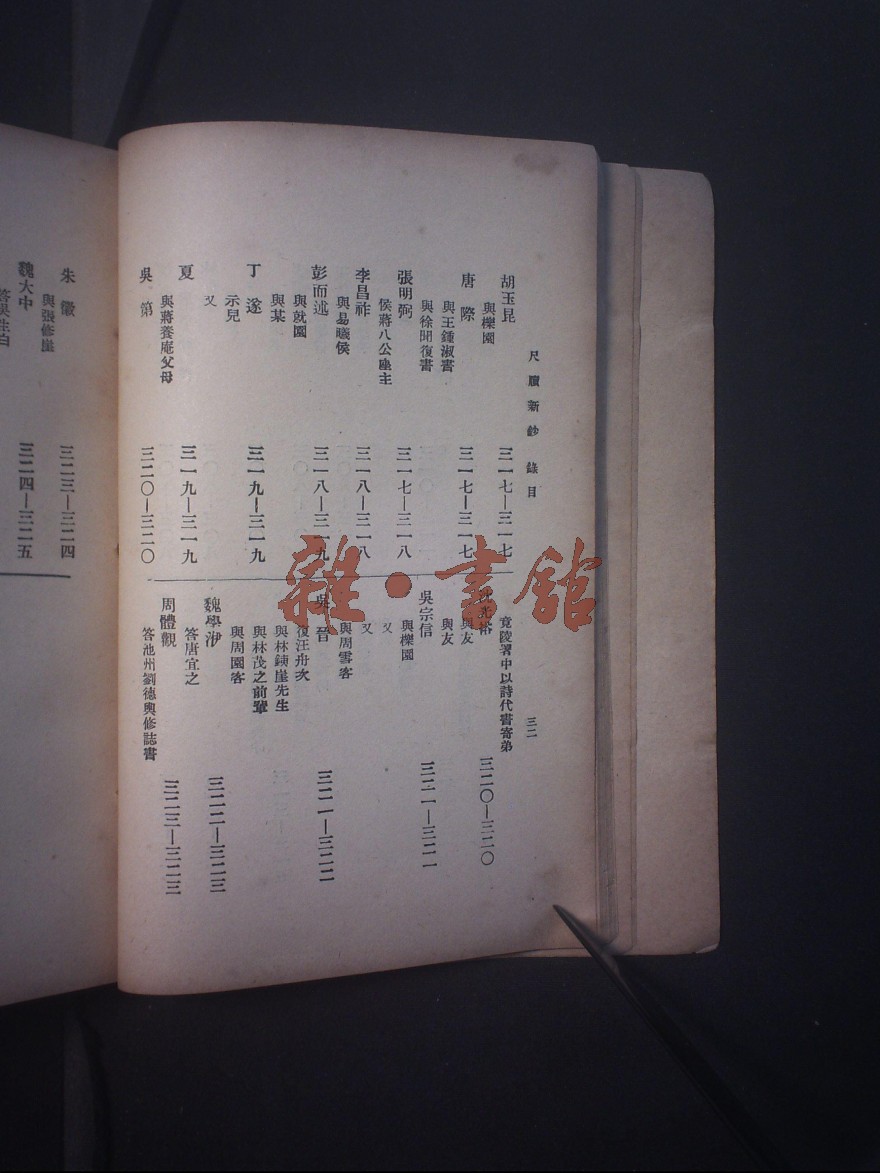 尺牘新鈔 錄目 三二
胡玉昆 三一七—三一七
與櫟園
唐際 三一七—三一七
與王鍾淑書
與徐聞復書
張明弼 三一七—三一八
侯蔣八公座主
李昌祚 三一八—三一八
與易曦侯
彭而述 三一八—三一九
與就園
與某
丁遂 三一九—三一九
示兒
又
夏 三一九—三一九
與蔣養庵父母
吳第 三二〇—三二〇
竟陵署中以詩代書寄弟
裕 三二〇—三二〇
與友
與友
吳宗信 三二一—三二一
與櫟園
又
又
與周雪客
吳晉 三二一—三二二
復汪舟次
與林鐵崖先生
與林茂之前輩
與周園客
魏學洢 三二二—三二三
答唐宜之
周體觀 三二三—三二三
答池州劉德輿修誌書
朱徽 三二三—三二四
與張修崖
魏大中 三二四—三二五
雜·書館